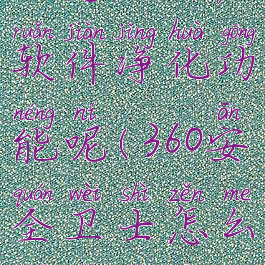 ruǎn jiàn jìng huà gōng
软件净化功
néng ne ān
能呢(360安
quán wèi shì zěn me
全卫士怎么